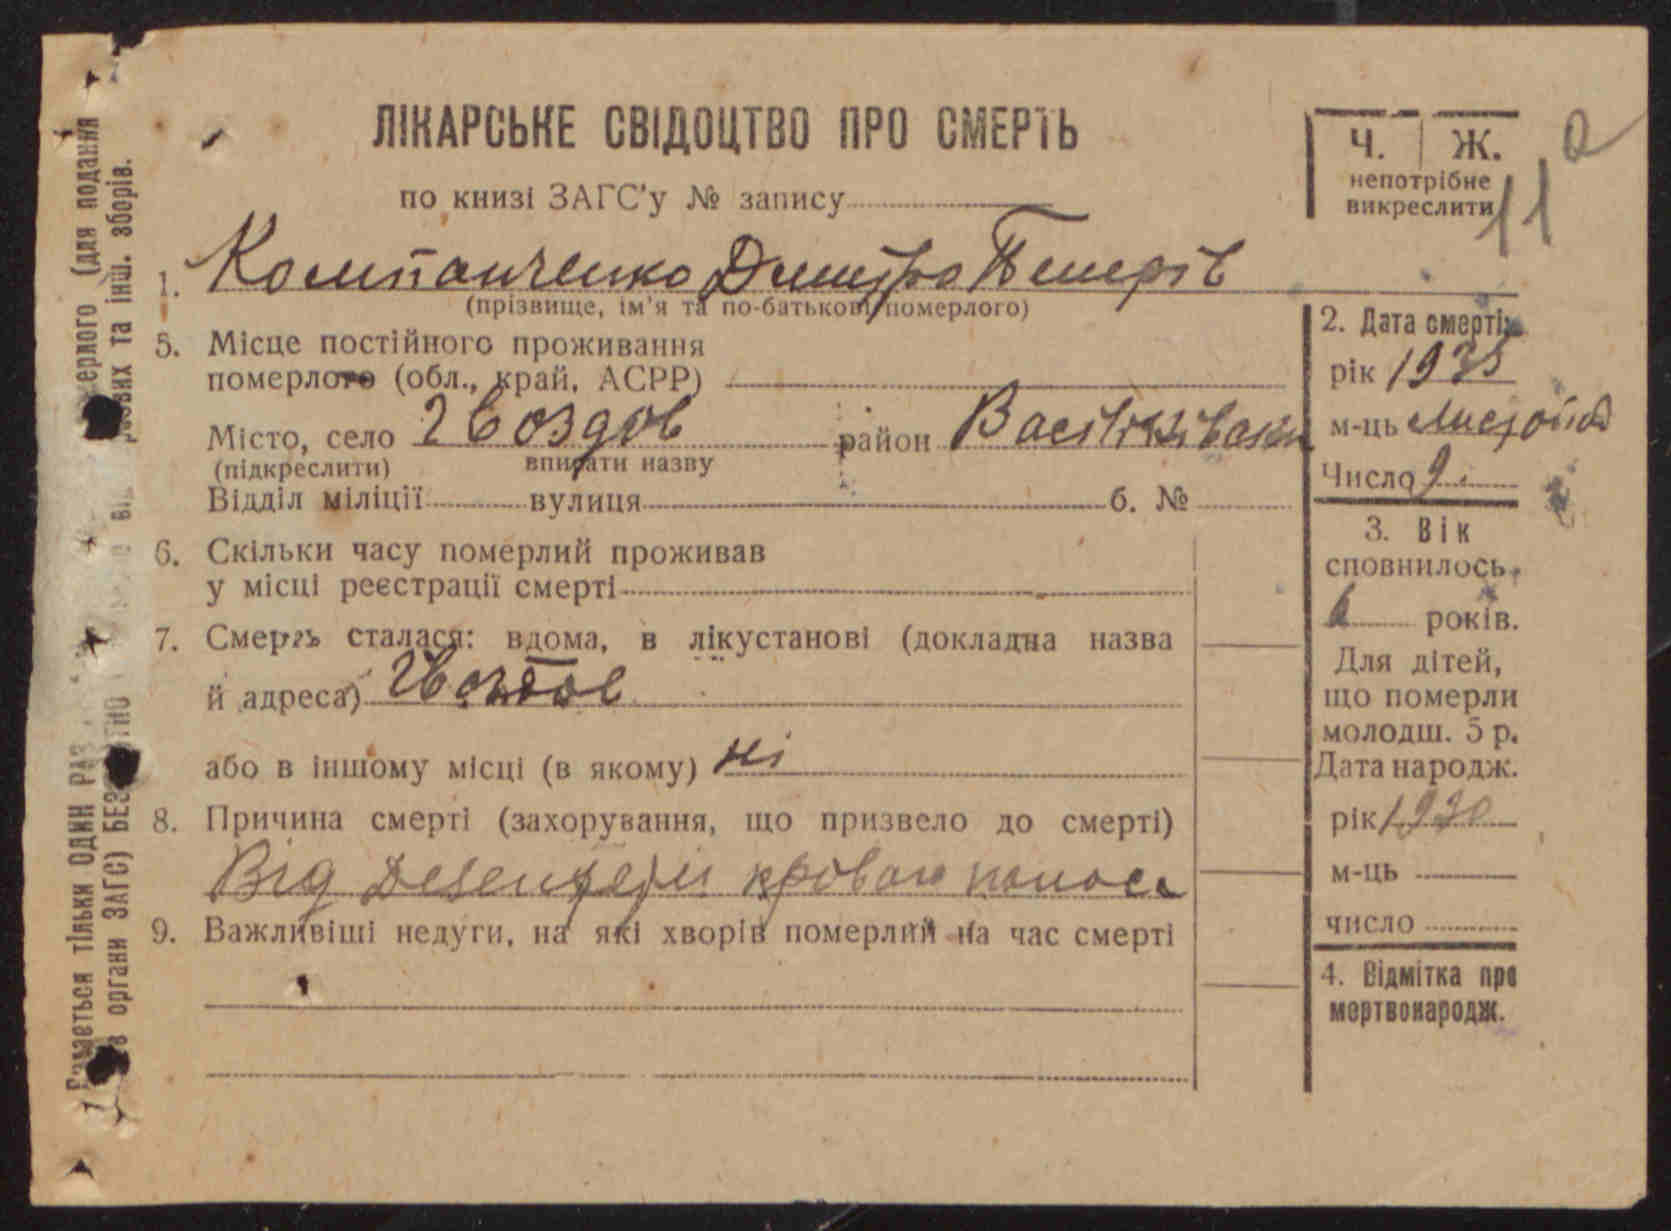 ЛІКАРСЬКЕ СВІДОЦТВО ПРО СМЕРТЬ
по книзі ЗАГС'у № запису
Ч. Ж.
непотрібне
викреслити
11
1. Компанченко Дмитро
(прізвище, ім'я та по-батькові померлого)
5. Місце постійного проживання
померлого (обл., край, АСРР)
Місто, село Гвоздов район
(підкреслити) вписати назву
Відділ міліції вулиця б. №
6. Скільки часу померлий проживав
у місці реєстрації смерті
7. Смерть сталася: вдома, в лікустанові (докладна назва
й адреса) Гвоздов
або в іншому місці (в якому) ні
8. Причина смерті (захорування, що призвело до смерті)
Від
9. Важливіші недуги, на які хворів померлий на час смерті
2. Дата смерті:
рік 1935
м-ць
Число 9.
3. Вік
сповнилось
6 років.
Для дітей,
що померли
молодш. 5 р.
Дата народж.
рік 1930
м-ць
число
4. Відмітка про
мертвонародж.
ється тільки ОДИН РАЗ
органи ЗАГС)
(для подання
та інш. зборів.